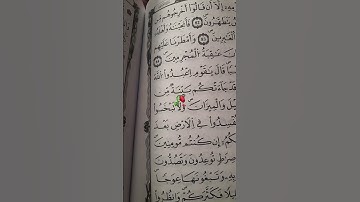 مِهِۦٓ إِلَّآ أَن قَالُوٓا۟ أَخْرِجُوهُم مِّن
يَتَطَهَّرُونَ ٨٢ فَأَنجَيْنَٰهُ وَأَهْلَهُ
ٱلْغَٰبِرِينَ ٨٣ وَأَمْطَرْنَا عَلَيْهِم
نَ عَٰقِبَةُ ٱلْمُجْرِمِينَ ٨٤
بًا قَالَ يَٰقَوْمِ ٱعْبُدُوا۟ ٱللَّهَ
قَدْ جَآءَتْكُم بَيِّنَةٌ مِّن
يْلَ وَٱلْمِيزَانَ وَلَا تَبْخَسُوا۟
تُفْسِدُوا۟ فِى ٱلْأَرْضِ بَعْدَ
كُمْ إِن كُنتُم مُّؤْمِنِينَ
صِرَٰطٍ تُوعِدُونَ وَتَصُدُّونَ
بِهِۦ وَتَبْغُونَهَا عِوَجًا
لِيلًا فَكَثَّرَكُمْ وَٱنظُرُوا۟